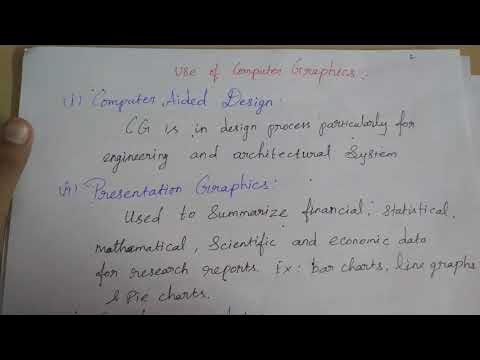 2
Use of Computer Graphics:
(i) Computer Aided Design:
CG is in design process particularly for
engineering and architectural System
(ii) Presentation Graphics:
Used to Summarize financial, statistical,
mathematical, Scientific and economic data
for research reports. Ex: bar charts, line graphs
& Pie charts.